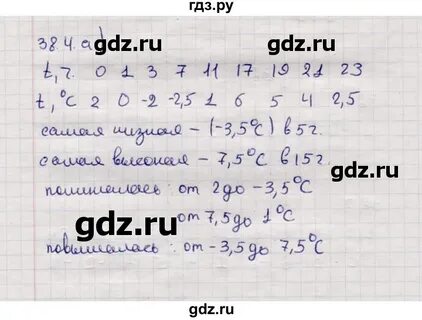 гдз.ру
38.4. а)
t, ч. 0 1 3 7 11 17 19 21 23
t, °C 2 0 -2 -2,5 1 6 5 4 2,5
самая низкая – (-3,5°C) в 5 г.
самая высокая – 7,5°C в 15 г.
понижалась: от 2 до -3,5°C
от 7,5 до 1°C
повышалась: от -3,5 до 7,5°C
gdz.ru
gdz.ru
gdz.ru
gdz.ru
gdz.ru
gdz.ru
gdz.ru